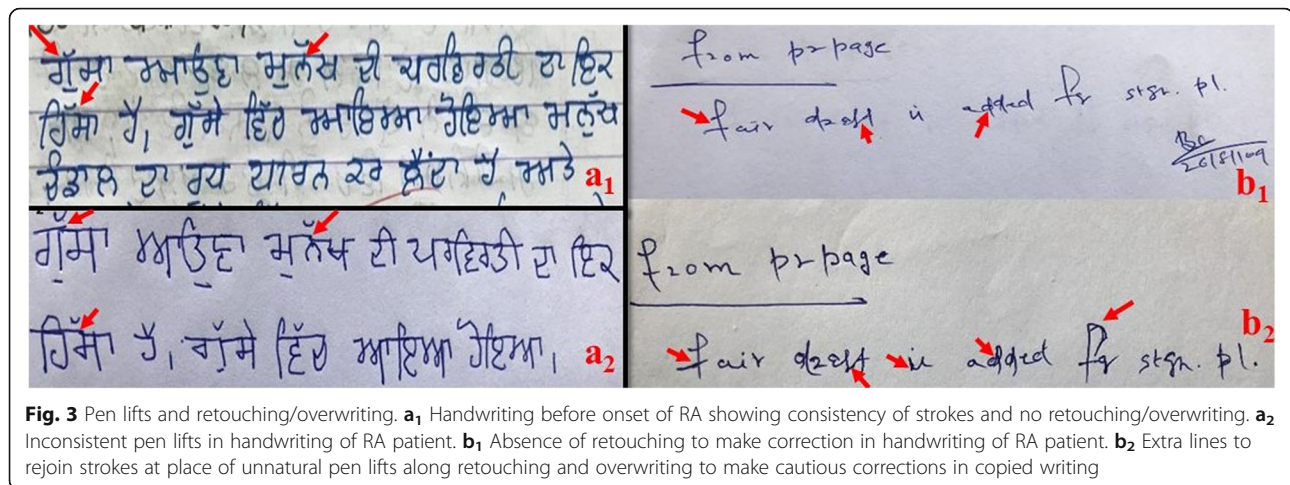 ਗੁੱਸਾ ਆਉਣਾ ਮੁਨੱਖ ਦੀ ਪਰਵਿਰਤੀ ਦਾ ਇਕ
ਹਿੱਸਾ ਹੈ, ਗੁੱਸੇ ਵਿੱਚ ਆਇਆ ਹੋਇਆ ਮਨੁੱਖ
ਚੰਡਾਲ ਦਾ ਰੂਪ ਧਾਰਨ ਕਰ ਲੈਂਦਾ ਹੈ ਅਤੇ
a1
from prpage
fair draft is added for sign. pl.
b1
ਗੁੱਸਾ ਆਉਣਾ ਮੁਨੱਖ ਦੀ ਪਰਵਿਰਤੀ ਦਾ ਇਕ
ਹਿੱਸਾ ਹੈ, ਗੁੱਸੇ ਵਿੱਚ ਆਇਆ ਹੋਇਆ,
a2
from prpage
fair draft is added for sign. pl.
b2
Fig. 3 Pen lifts and retouching/overwriting. a1 Handwriting before onset of RA showing consistency of strokes and no retouching/overwriting. a2
Inconsistent pen lifts in handwriting of RA patient. b1 Absence of retouching to make correction in handwriting of RA patient. b2 Extra lines to
rejoin strokes at place of unnatural pen lifts along retouching and overwriting to make cautious corrections in copied writing